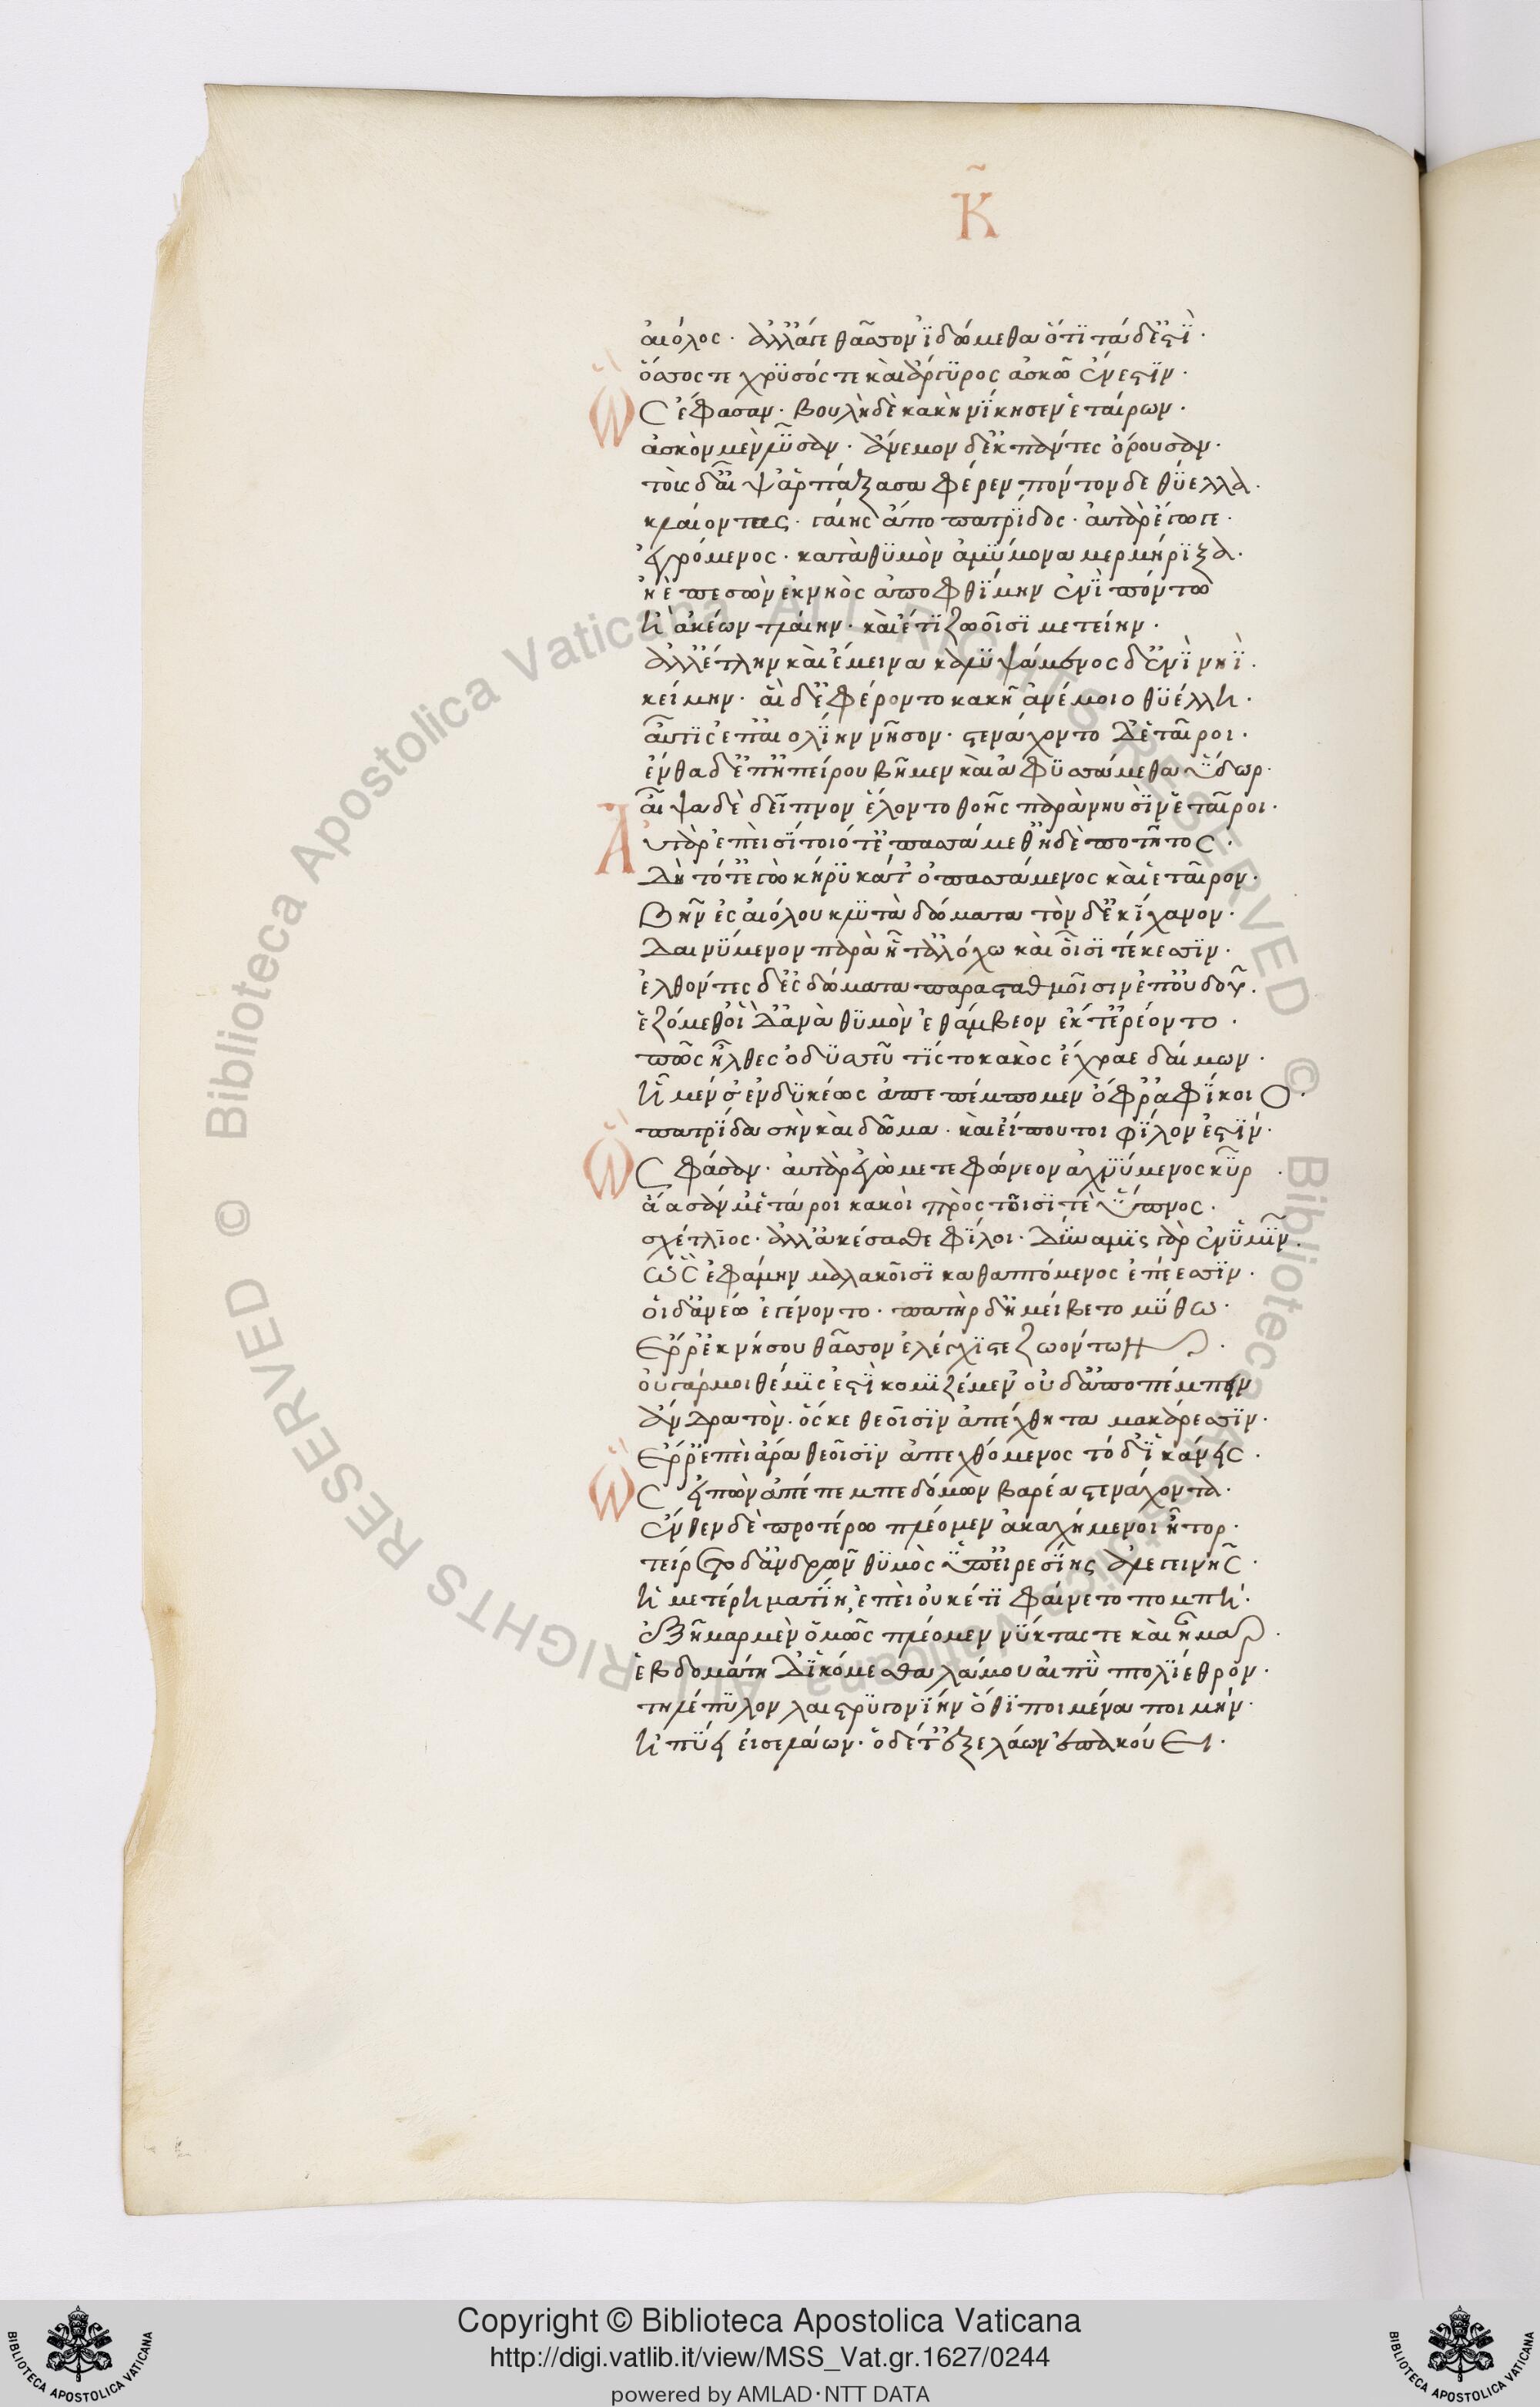 Κ̃
αἰόλος· ἀλλάγε θᾶσσον ἰδώμεθα ὅτι τάδ' ἐστὶ·
ὅσσος τε χρυσός τε καὶ ἄργυρος ἀσκῶ ἔνεστιν·
Ὣς ἔφασαν· βουλὴ δὲ κακὴ νίκησεν ἑταίρων·
ἀσκὸν μὲν λῦσαν· ἄνεμοι δ' ἐκ πάντες ὄρουσαν·
τοὺς δ' αἶψ' ἁρπάξασα φέρεν πόντον δε θύελλα·
κλαίοντας· γαίης ἄπο πατρίδος· αὐτὰρ ἔγωγε·
ἐγρόμενος· κατὰ θυμὸν ἀμύμονα μερμήριξα·
ἠὲ πεσὼν ἐκ νηὸς ἀποφθίμην ἐνὶ πόντω
ἢ ἀκέων τλαίην· καὶ ἔτι ζωοῖσι μετείην·
ἀλλ' ἔτλην καὶ ἔμεινα καλυψάμενος δ' ἐνὶ νηῒ·
κείμην· αἳ δ' ἐφέροντο κακῇ ἀνέμοιο θυέλλη·
αὖτις ἐπ' αἰολίην νῆσον· στενάχοντο δ' ἑταῖροι·
ἔνθα δ' ἐπ' ἠπείρου βῆμεν καὶ ἀφυσσάμεθα ὕδωρ·
αἶψα δὲ δεῖπνον ἕλοντο θοῇς παρὰ νηυσὶν ἑταῖροι·
Αὐτὰρ ἐπεὶ σίτοιό τ' ἐπασσάμεθ' ἠδὲ ποτῆτος·
δὴ τότ' ἐγὼ κήρυκά τ' ὀπασσάμενος καὶ ἑταῖρον·
βῆν ἐς αἰόλου κλυτὰ δώματα τὸν δ' ἐκίχανον·
δαινύμενον παρὰ ᾗ τ' ἀλόχω καὶ οἷσι τέκεσσιν·
ἐλθόντες δ' ἐς δώματα παρὰ σταθμοῖσιν ἐπ' οὐδοῦ·
ἑζόμεθ' οἳ δ' ἀνὰ θυμὸν ἐθάμβεον ἐκ τ' ἐρέοντο·
πῶς ἦλθες ὀδυσσεῦ τίς τοι κακὸς ἔχραε δαίμων·
ἦ μέν σ' ἐνδυκέως ἀπεπέμπομεν ὄφρ' ἀφίκοιο·
πατρίδα σὴν καὶ δῶμα· καὶ εἴ που τοι φίλον ἐστίν·
Ὣς φάσαν· αὐτὰρ ἐγὼ μετεφώνεον ἀχνύμενος κῆρ·
ἄασάν μ' ἕταροι κακοὶ πρὸς τοῖσι τὲ ὕπνος·
σχέτλιος· ἀλλ' ἀκέσασθε φίλοι· δύναμις γὰρ ἐν ὑμῖν·
ὣς ἐφάμην μαλακοῖσι καθαπτόμενος ἐπέεσσιν·
οἱ δ' ἄνεω ἐγένοντο· πατὴρ δ' ἠμείβετο μύθω·
ἔρρ' ἐκ νήσου θᾶσσον ἐλέγχιστε ζωόντων·
οὐ γάρ μοι θέμις ἐστὶ κομιζέμεν οὐδ' ἀποπέμπειν
ἄνδρα τὸν· ὅς κε θεοῖσιν ἀπέχθηται μακάρεσσιν·
ἔρρ' ἐπεὶ ἄρα θεοῖσιν ἀπεχθόμενος τό δ' ἱκάνεις·
Ὣς εἰπὼν ἀπέπεμπε δόμων βαρέα στενάχοντα·
ἔνθεν δὲ προτέρω πλέομεν ἀκαχήμενοι ἦτορ·
τείρετο δ' ἀνδρῶν θυμὸς ὑπ' εἰρεσίης ἀλεγεινῆς·
ἡμετέρη ματίη, ἐπεὶ οὐκέτι φαίνετο πομπή·
ἑξῆμαρ μὲν ὅμως πλέομεν νύκτας τε καὶ ἦμαρ·
ἑβδομάτη δ' ἱκόμεσθα λάμου αἰπὺ πτολίεθρον·
τηλέπυλον λαιστρυγονίην ὅθι ποιμένα ποιμὴν·
ἠπύει εἰσελάων· ὁ δέ τ' ἐξελάων ὑπακούει·